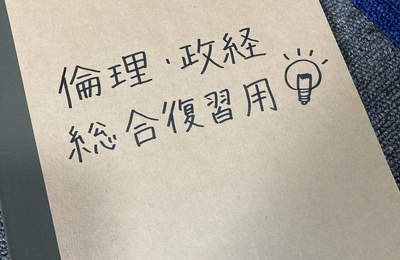 倫理・政経
総合復習用